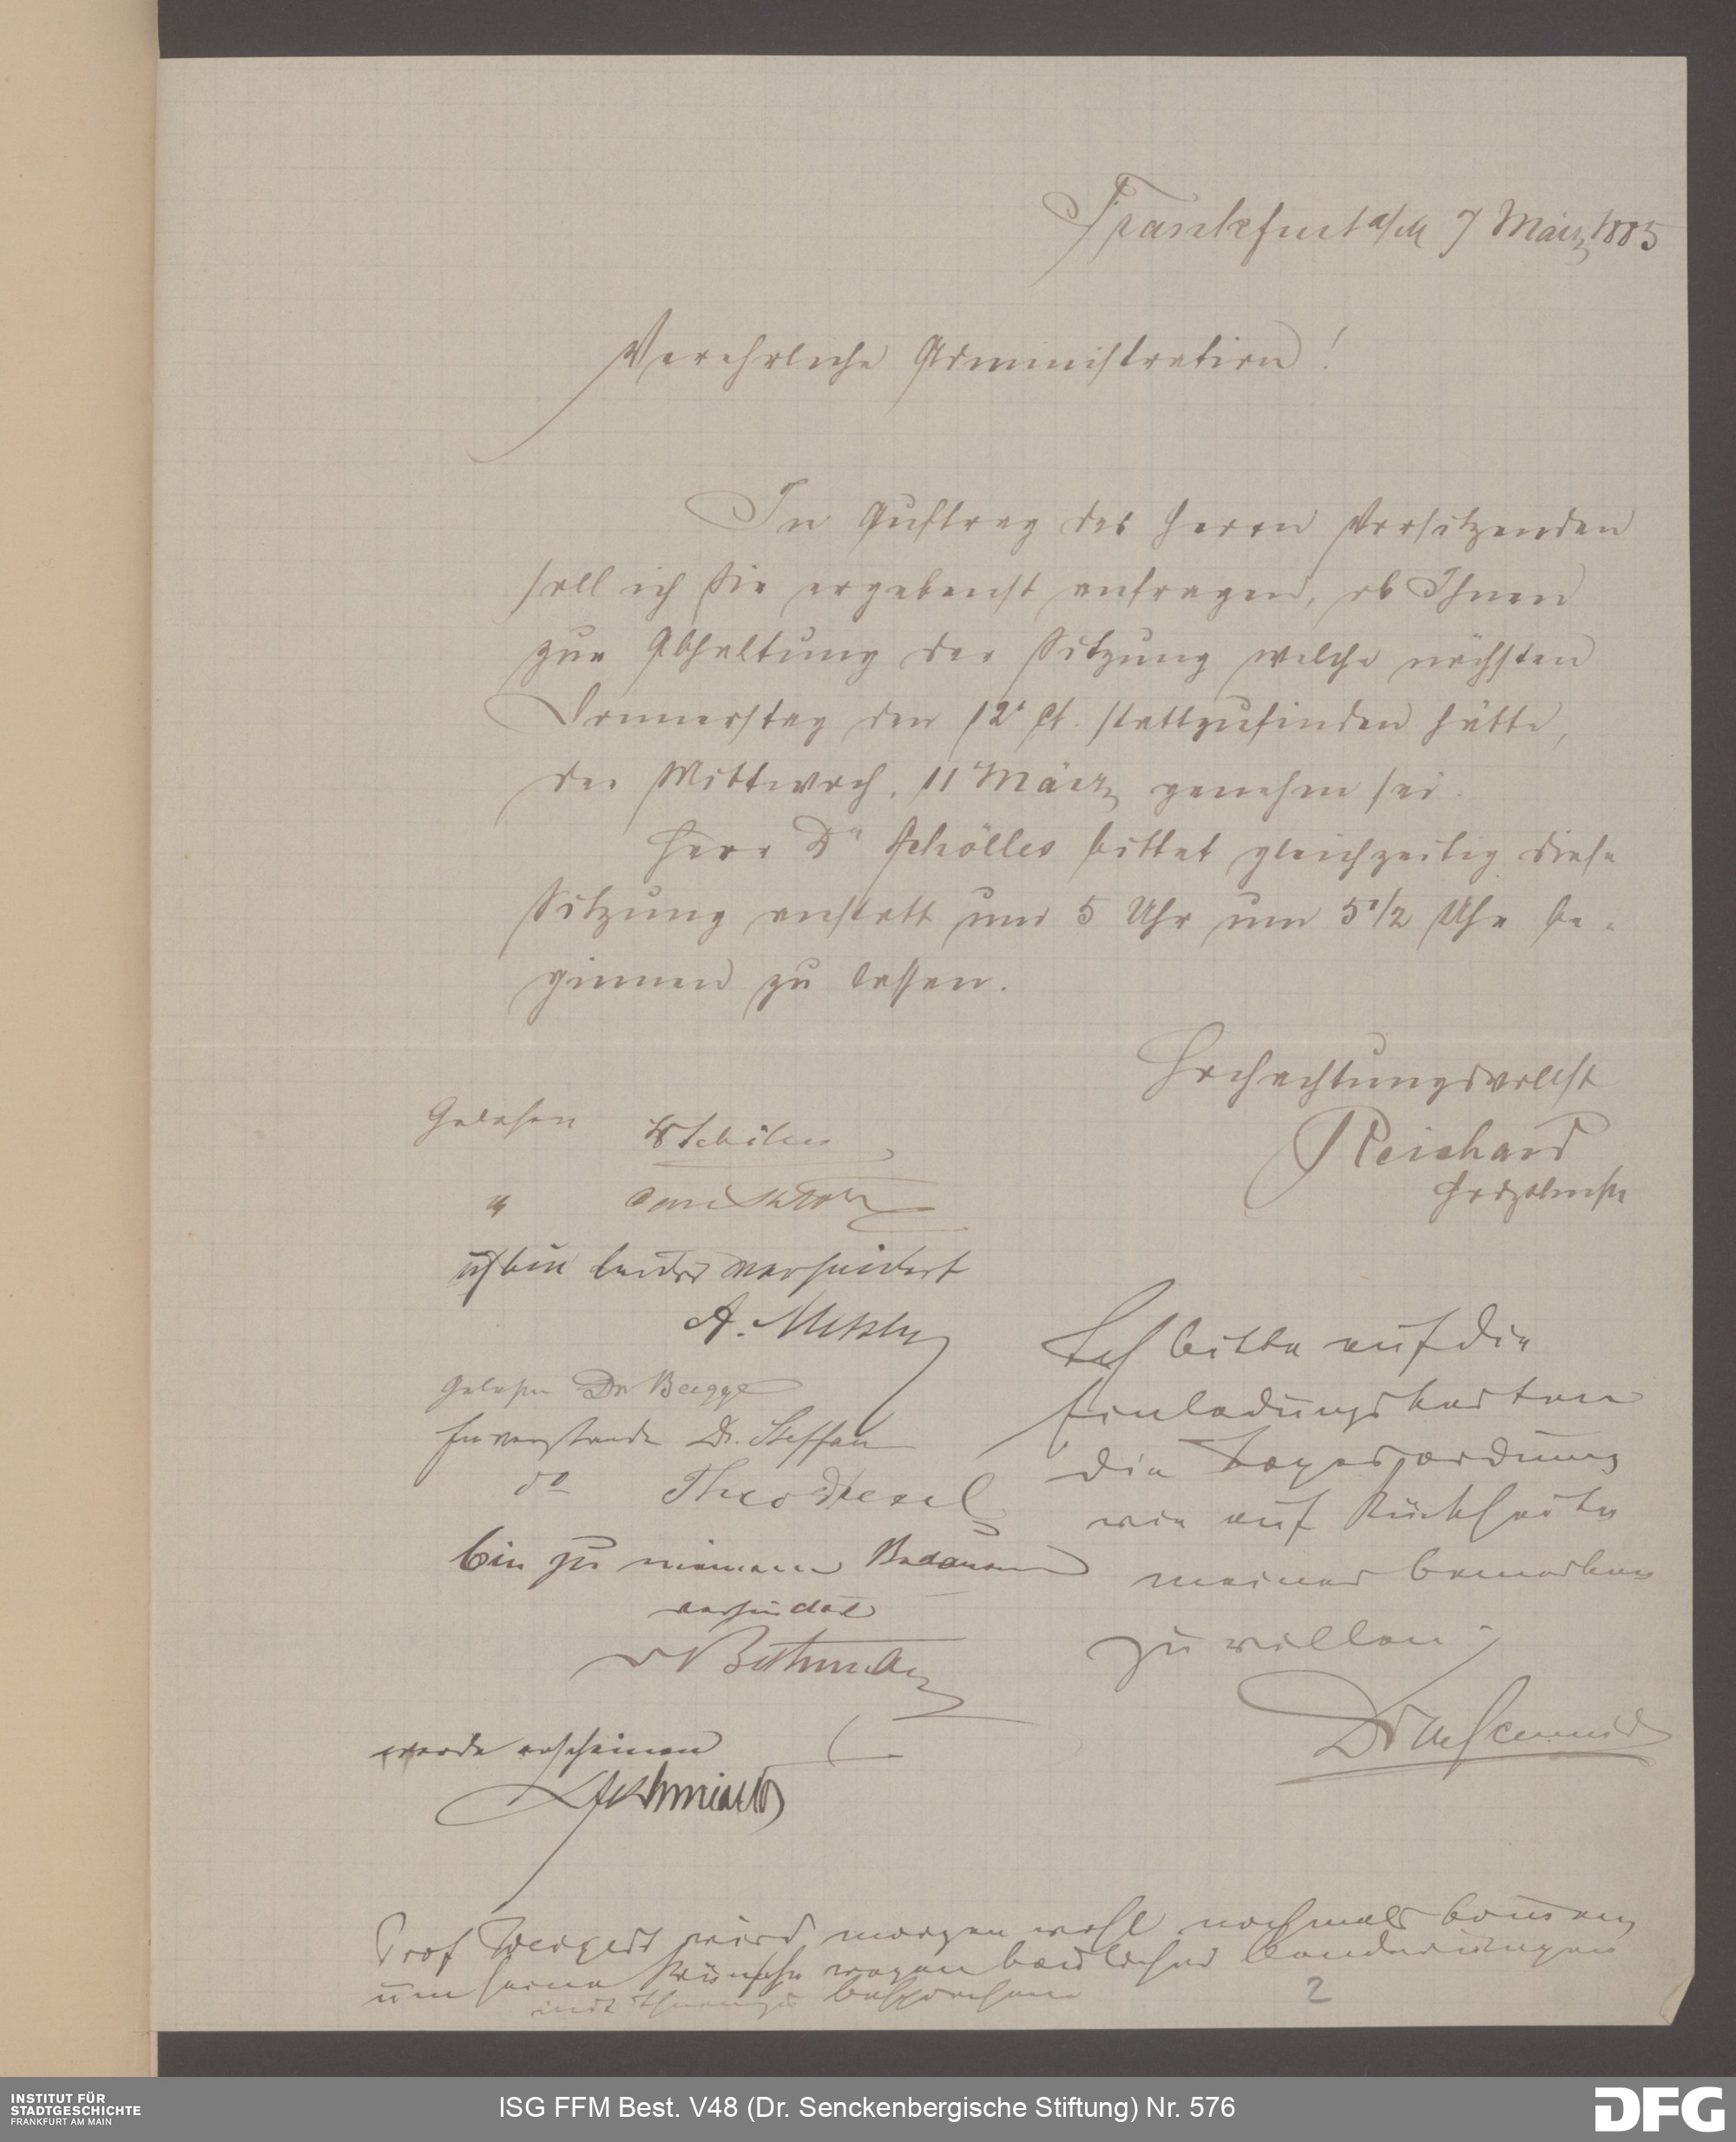 Frankfurt a/M 7 März 1885
Verehrliche Administration!
Im Auftrag des Herrn Vorsitzenden
soll ich Sie ergebenst anfragen, ob Ihnen
zur Abhaltung der Sitzung welche nächsten
Donnerstag den 12t. ct. stattzufinden hätte,
der Mittwoch, 11 März genehm sei.
Herr Dr Schölles bittet gleichzeitig diese
Sitzung anstatt um 5 Uhr um 5 1/2 Uhr be-
ginnen zu lassen.
Hochachtungsvollst
Reichard
Gelesen
"
ich bin leider verhindert
A. Metzler
gelesen Dr Bagge
Einverstanden Dr. Steffan
do Theodor
bin zu meinem Bedauern
verhindert
v Bethmann
werde erscheinen
Schmidt
Ich bitte auf die
Einladungskarten
die Tagesordnung
wie auf Rückseite
meiner bemerken
zu wollen.
Dr Schmidt
Prof Weigert wird morgen wohl nochmals kommen,
um seine Wünsche wegen baulicher Veränderungen
mit besprechen
2
INSTITUT FÜR
STADTGESCHICHTE
FRANKFURT AM MAIN
ISG FFM Best. V48 (Dr. Senckenbergische Stiftung) Nr. 576
DFG